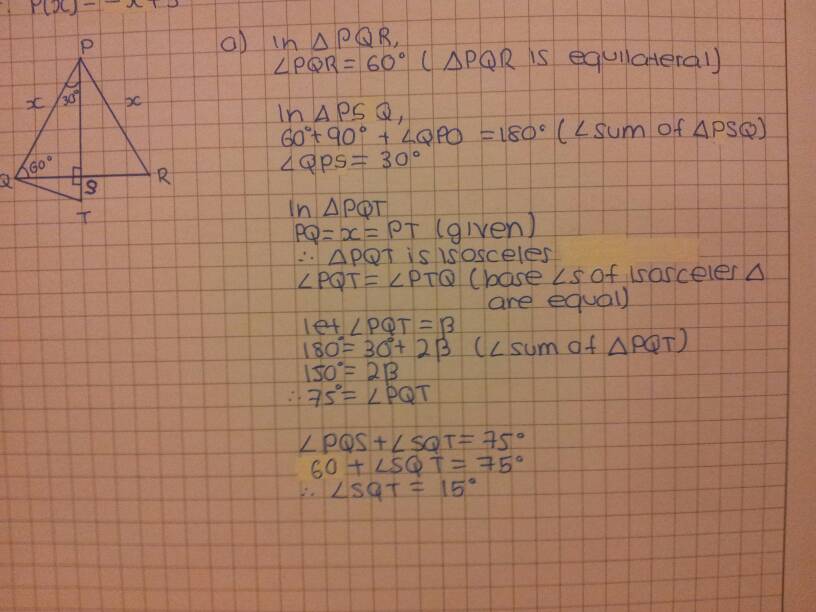 P(x) = -x + 3
P
x
30°
x
Q
60°
S
R
T
a) In △PQR,
∠PQR = 60° ( △PQR is equilateral)
In △PSQ,
60° + 90° + ∠QPO = 180° (∠sum of △PSQ)
∠QPS = 30°
In △PQT
PQ = x = PT (given)
∴ △PQT is isosceles
∠PQT = ∠PTQ (base ∠s of isosceles △
are equal)
let ∠PQT = β
180° = 30° + 2β (∠sum of △PQT)
150° = 2β
∴ 75° = ∠PQT
∠PQS + ∠SQT = 75°
60 + ∠SQT = 75°
∴ ∠SQT = 15°